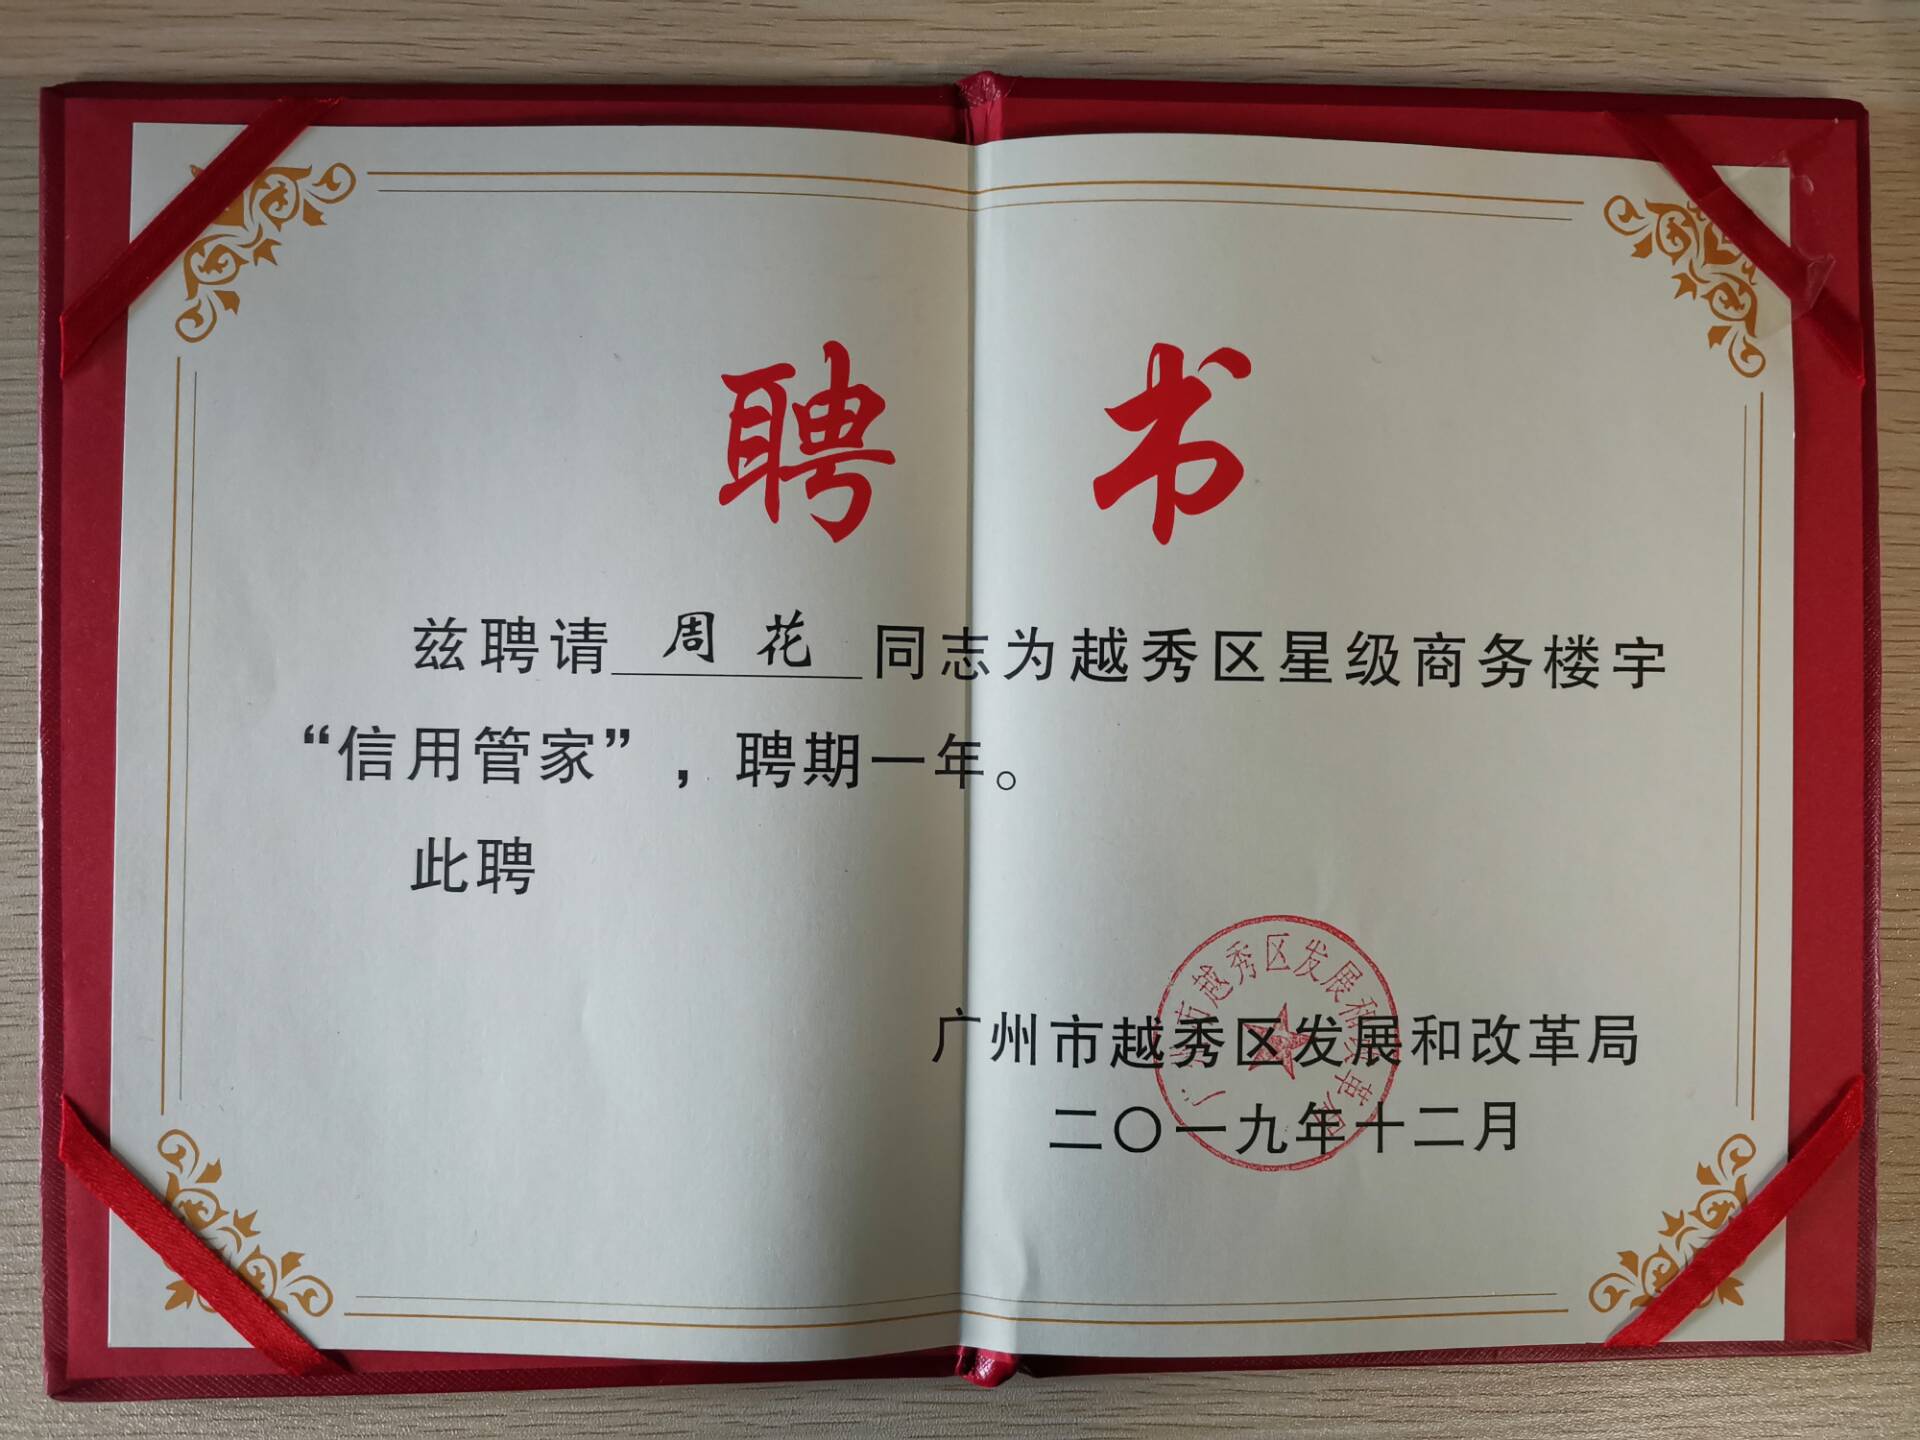 聘书
兹聘请 周花 同志为越秀区星级商务楼宇
“信用管家”，聘期一年。
此聘
广州市越秀区发展和改革局
广州市越秀区发展和改革局
二〇一九年十二月